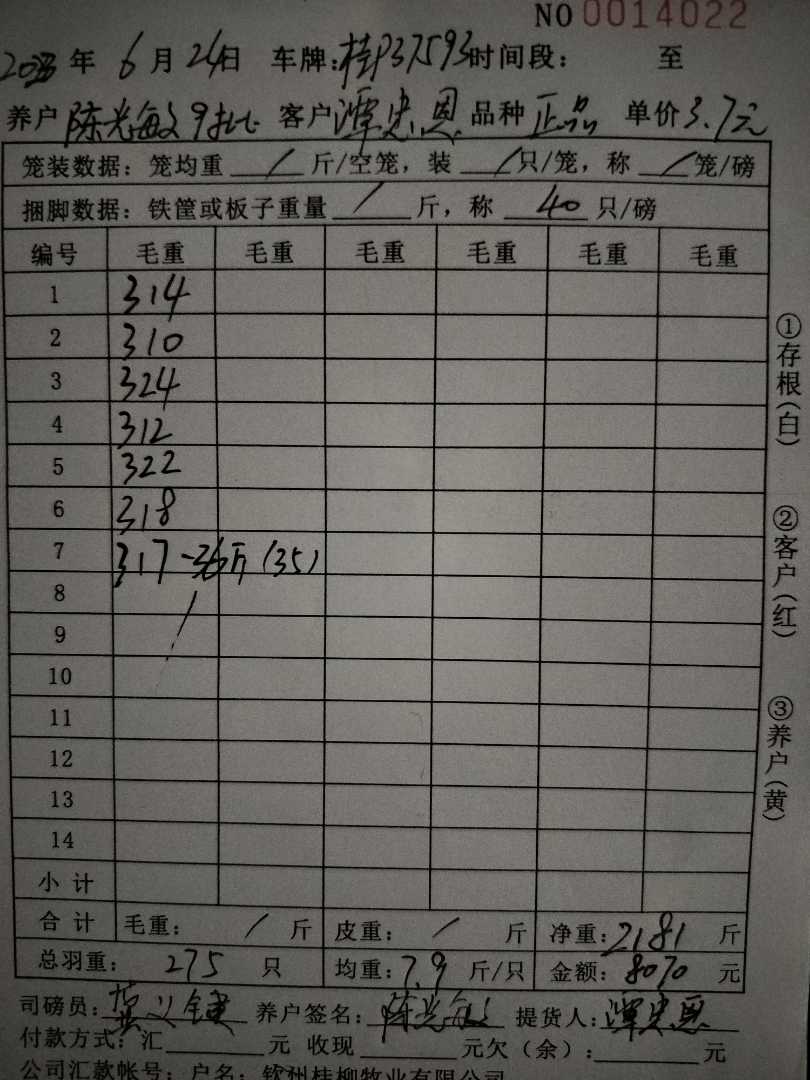 NO 0014022
2023年 6月24日 车牌:桂P37593 时间段: 至
养户 陈光敏9批 客户 潭忠恩 品种 正品 单价3.7元
笼装数据: 笼均重 / 斤/空笼, 装 / 只/笼, 称 / 笼/磅
捆脚数据: 铁筐或板子重量 / 斤, 称 40 只/磅
编号 毛重 毛重 毛重 毛重 毛重 毛重
1 314
2 310
3 324
4 312
5 322
6 318
7 317-36斤(35)
8
9
10
11
12
13
14
小计
合计 毛重: / 斤 皮重: / 斤 净重:2181 斤
总羽重: 275 只 均重:7.9 斤/只 金额:8070 元
司磅员: 养户签名:陈光敏 提货人:潭忠恩
付款方式:汇 元 收现 元欠(余): 元
公司汇款帐号: 户名: 钦州桂柳牧业有限公司
①存根(白)
②客户(红)
③养户(黄)